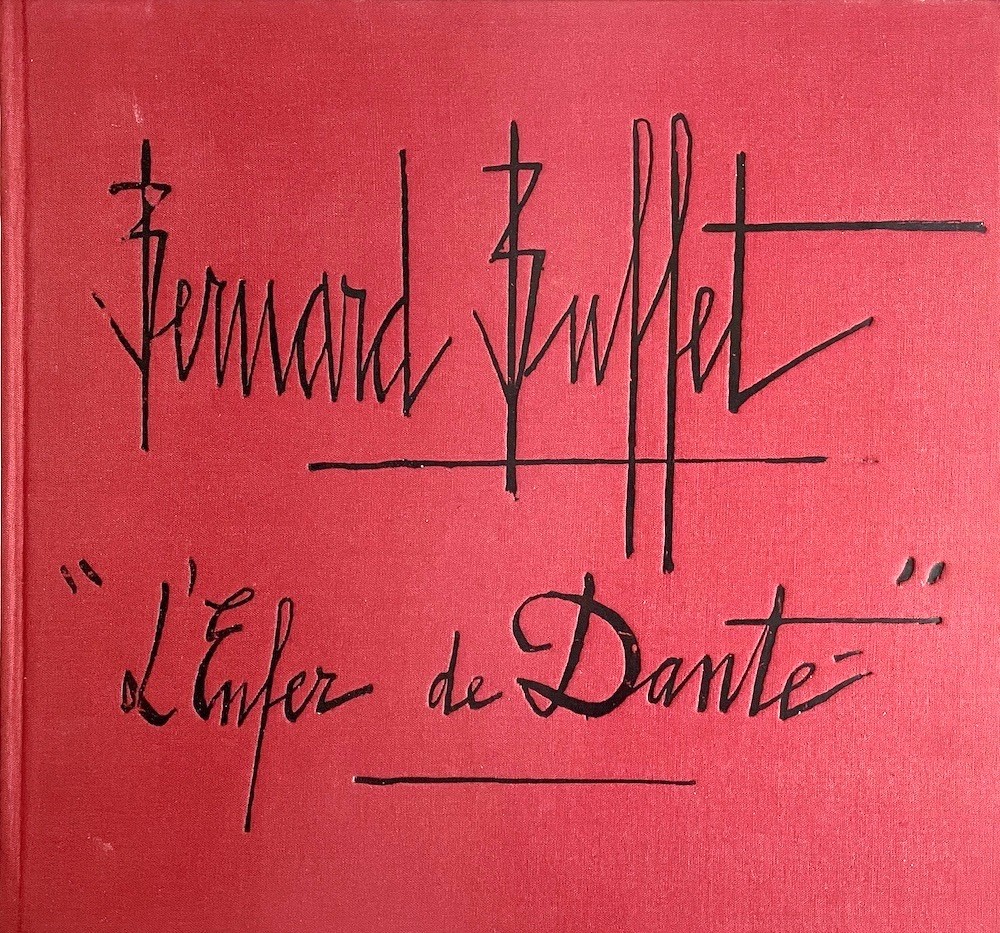 Bernard Buffet
"L'Enfer de Dante"